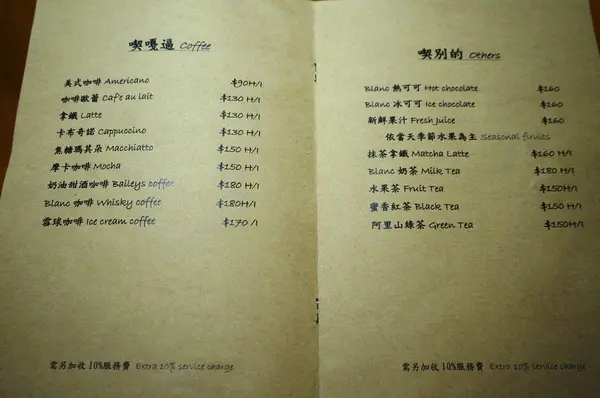 喫嘎逼 Coffee
美式咖啡 Americano $90H/I
咖啡歐蕾 Cafe au lait $130 H/I
拿鐵 Latte $130 H/I
卡布奇諾 Cappuccino $130 H/I
焦糖瑪其朵 Macchiatto $150 H/I
摩卡咖啡 Mocha $150 H/I
奶油甜酒咖啡 Baileys coffee $180 H/I
Blanc 咖啡 Whisky coffee $180H/I
雪球咖啡 Ice cream coffee $170 /I
需另加收 10%服務費 Extra 10% service charge
喫別的 Others
Blanc 熱可可 Hot chocolate $160
Blanc 冰可可 Ice chocolate $160
新鮮果汁 Fresh Juice $160
依當天季節水果為主 Seasonal fruits
抹茶拿鐵 Matcha Latte $160 H/I
Blanc 奶茶 Milk Tea $180 H/I
水果茶 Fruit Tea $150H/I
蜜香紅茶 Black Tea $150 H/I
阿里山綠茶 Green Tea $150H/I
需另加收 10%服務費 Extra 10% service charge